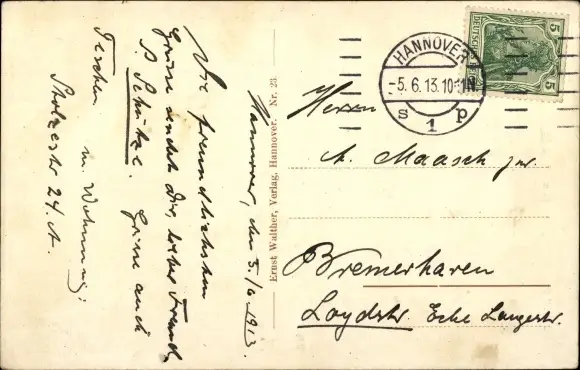 Hannover, den 5./6 1913.
Die freundlichsten
Grüße sendet Dir, lieber Freund,
P. Schütze. Grüße auch
Taschen
m. Wohnung:
Stolzestr 24. A.
Ernst Walther, Verlag, Hannover. Nr. 23
HANNOVER
-5.6.13.10-11N.
s 1 p
5 DEUTSCHES 5
Herrn
A. Maasch jr.
Bremerhaven
Loydstr. Ecke Langestr.